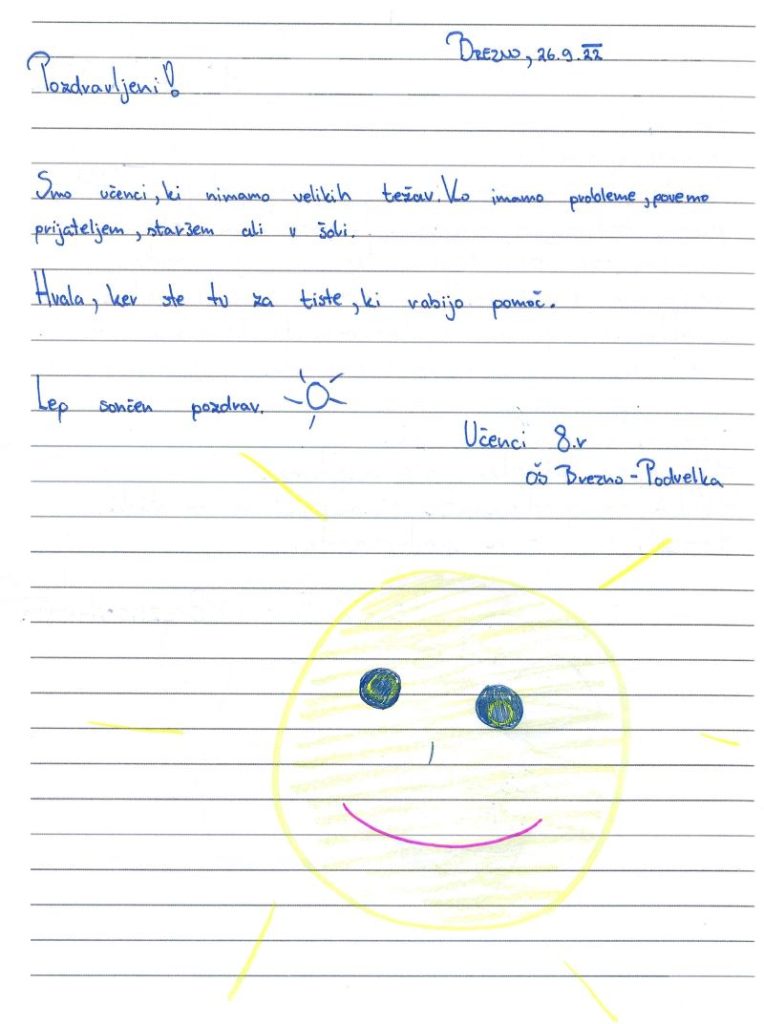 Brezno, 26.9.22
Pozdravljeni!
Smo učenci, ki nimamo velikih težav. Ko imamo probleme, povemo
prijateljem, staršem ali v šoli.
Hvala, ker ste tu za tiste, ki rabijo pomoč.
Lep sončen pozdrav.
Učenci 8.r
OŠ Brezno-Podvelka